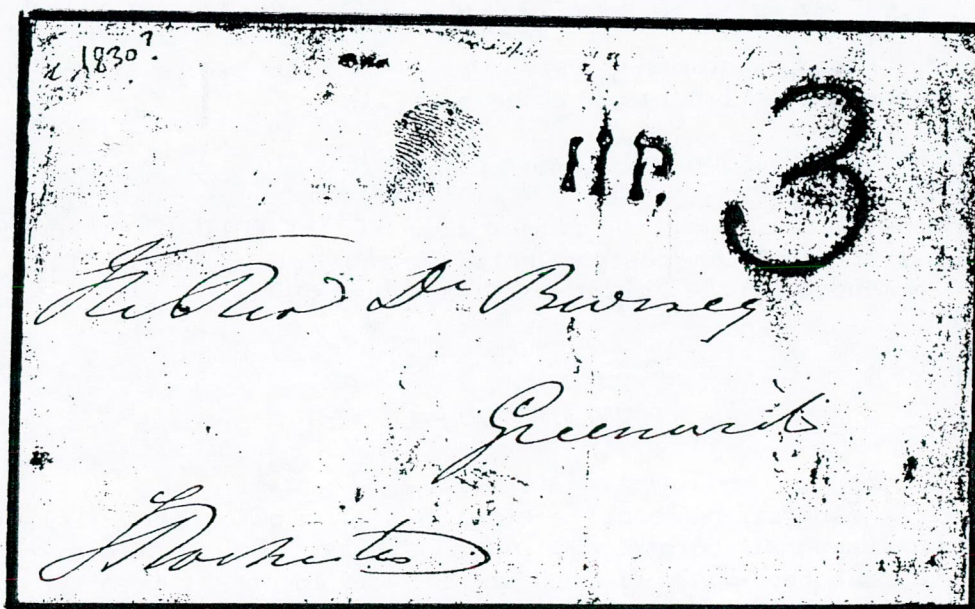 c 1830?
11P. 3
The Revd Dr Burney
Greenwich
J Rochester